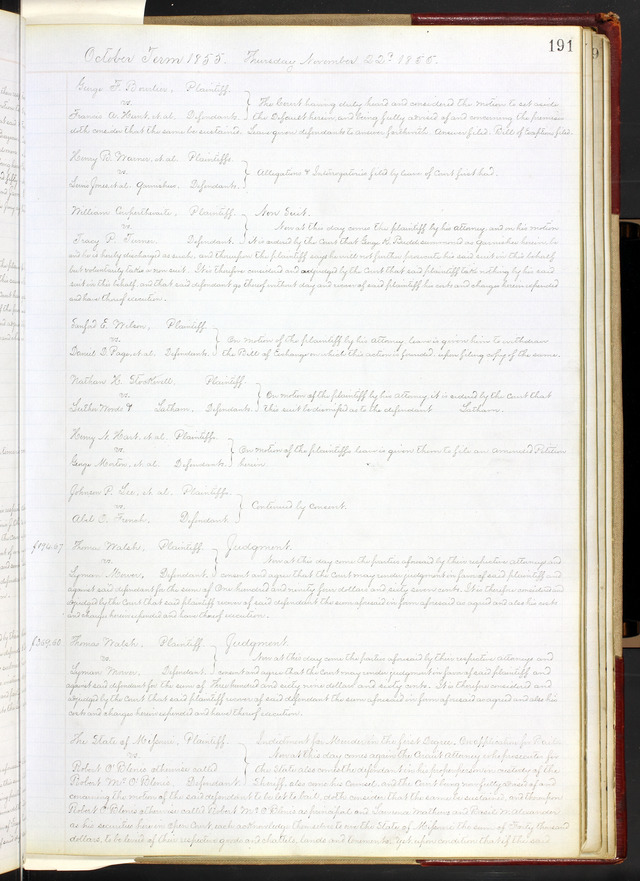 191
October Term 1855. Thursday November 22d 1855.
George F. Plaintiff.
vs.
Francis A. Hunt, et al. Defendants.
The Court having duly heard and considered the motion to set aside
the Default herein, and being fully advised of and concerning the premises
doth consider that the same be sustained. Leave given defendants to answer forthwith. Answer filed. Bill of Exceptions filed.
Henry B. et al. Plaintiffs.
vs.
et al. Garnishees. Defendants.
Allegations & Interrogatories filed by leave of Court first had.
William Plaintiff.
vs.
Tracy P. Turner. Defendant.
Non Suit.
Now at this day comes the plaintiff by his attorney, and on his motion
it is ordered by the Court that George K. Budd summoned as garnishee herein be
and he is hereby discharged as such, and thereupon the plaintiff says he will not further prosecute his said suit in this behalf
but voluntarily takes a non suit. It is therefore considered and adjudged by the Court that said plaintiff take nothing by his said
suit in this behalf, and that said defendant go thereof without day and recover of said plaintiff his costs and charges herein expended
and have thereof execution.
E. Wilson, Plaintiff.
vs.
Daniel D. Page, et al. Defendants.
On motion of the plaintiff by his attorney, leave is given him to withdraw
the Bill of Exchange on which this action is founded, upon filing copy of the same.
Nathan H. Stockwell. Plaintiff.
vs.
Luther Woods & Latham, Defendants.
On motion of the plaintiff by his attorney, it is ordered by the Court that
this suit be dismissed as to the defendant Latham.
Henry N. Hart, et al. Plaintiffs.
vs.
George et al. Defendants.
On motion of the plaintiffs leave is given them to file an amended Petition
herein.
Johnson P. Lee, et al. Plaintiffs.
vs.
Abel C. French. Defendant.
Continued by consent.
$196.67 Thomas Walsh, Plaintiff.
vs.
Lyman Defendant.
Judgment.
Now at this day come the parties aforesaid by their respective attorneys and
consent and agree that the Court may render judgment in favor of said plaintiff and
against said defendant for the sum of One hundred and ninety four dollars and sixty seven cents. It is therefore considered and
adjudged by the Court that said plaintiff recover of said defendant the sum aforesaid in form aforesaid as agreed and also his costs
and charges herein expended and have thereof execution.
$369.60 Thomas Walsh, Plaintiff.
vs.
Lyman Defendant.
Judgment.
Now at this day come the parties aforesaid by their respective attorneys and
consent and agree that the Court may render judgment in favor of said plaintiff and
against said defendant for the sum of Three hundred and sixty nine dollars and sixty cents. It is therefore considered and
adjudged by the Court that said plaintiff recover of said defendant the sum aforesaid in form aforesaid as agreed and also his
costs and charges herein expended and have thereof execution.
The State of Missouri, Plaintiff.
vs.
Robert O'Blenis otherwise called
Robert McO'Blenis, Defendant.
Indictment for Murder in the first Degree. On application for
Now at this day comes again the Circuit Attorney who prosecutes for
the State also comes the defendant in his proper person in custody of the
Sheriff, also come his Counsel, and the Court being now fully advised of and
concerning the motion of the said defendant to be let to bail, doth consider that the same be sustained, and thereupon
Robert O'Blenis otherwise called Robert McO'Blenis as principal and and
as his securities here in open Court, each acknowledge themselves to owe the State of Missouri the sum of Forty thousand
dollars, to be levied of their respective goods and chattels, lands and tenements. Yet, upon condition that if the said